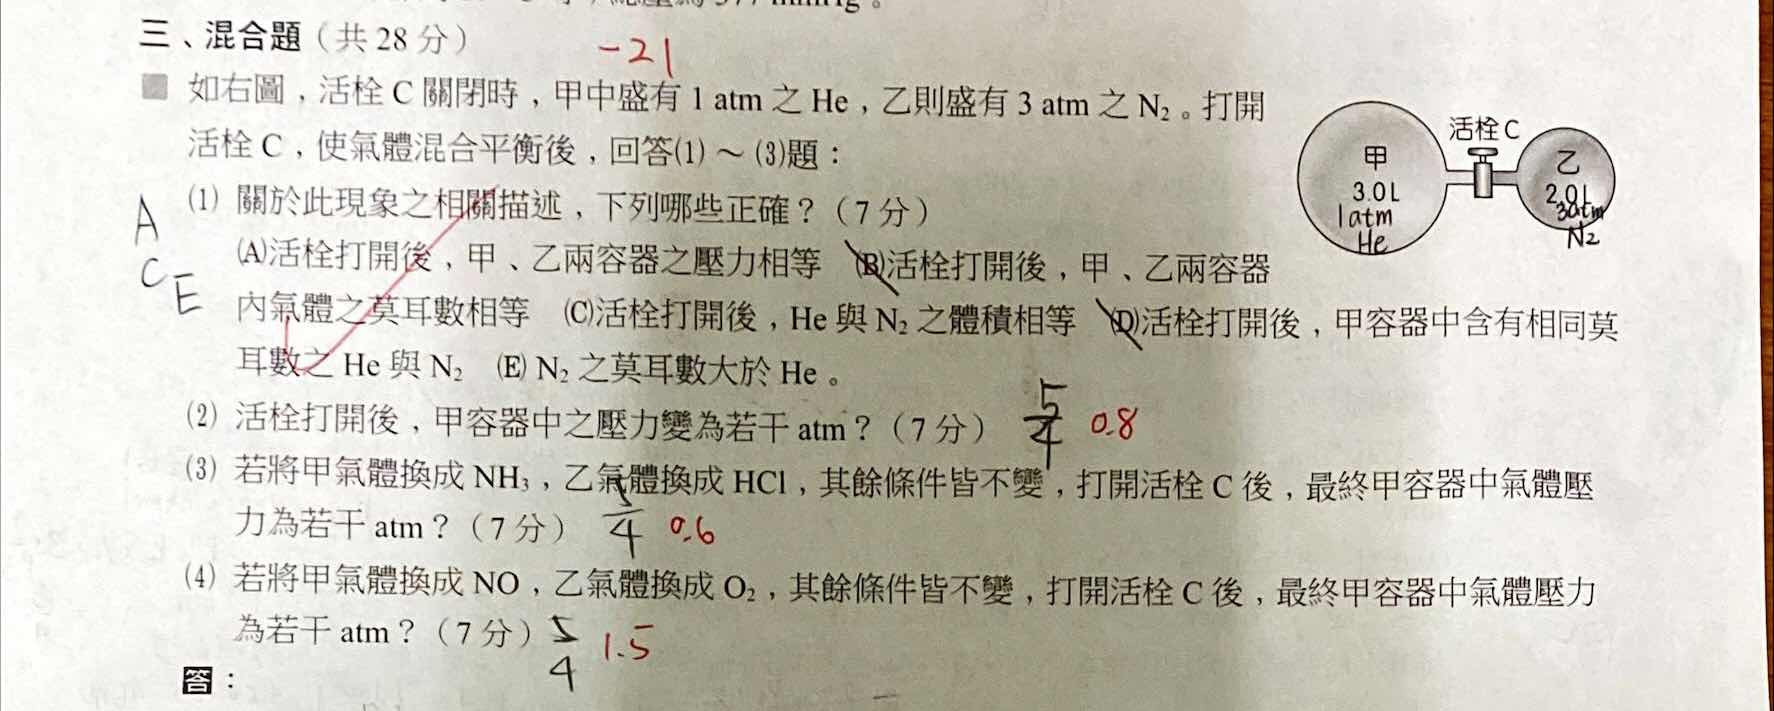 三、混合題（共 28 分）
-21
如右圖，活栓 C 關閉時，甲中盛有 1 atm 之 He，乙則盛有 3 atm 之 N₂。打開
活栓 C，使氣體混合平衡後，回答⑴～⑶題：
活栓 C
甲
3.0L
1atm
He
乙
2.0L
3atm
N2
A
C
E
⑴ 關於此現象之相關描述，下列哪些正確？（7 分）
(A)活栓打開後，甲、乙兩容器之壓力相等 (B)活栓打開後，甲、乙兩容器
內氣體之莫耳數相等 (C)活栓打開後，He 與 N₂ 之體積相等 (D)活栓打開後，甲容器中含有相同莫
耳數之 He 與 N₂ (E) N₂ 之莫耳數大於 He。
⑵ 活栓打開後，甲容器中之壓力變為若干 atm？（7 分） 5/4 0.8
⑶ 若將甲氣體換成 NH₃，乙氣體換成 HCl，其餘條件皆不變，打開活栓 C 後，最終甲容器中氣體壓
力為若干 atm？（7 分） 5/4 0.6
⑷ 若將甲氣體換成 NO，乙氣體換成 O₂，其餘條件皆不變，打開活栓 C 後，最終甲容器中氣體壓力
為若干 atm？（7 分） 5/4 1.5
答：